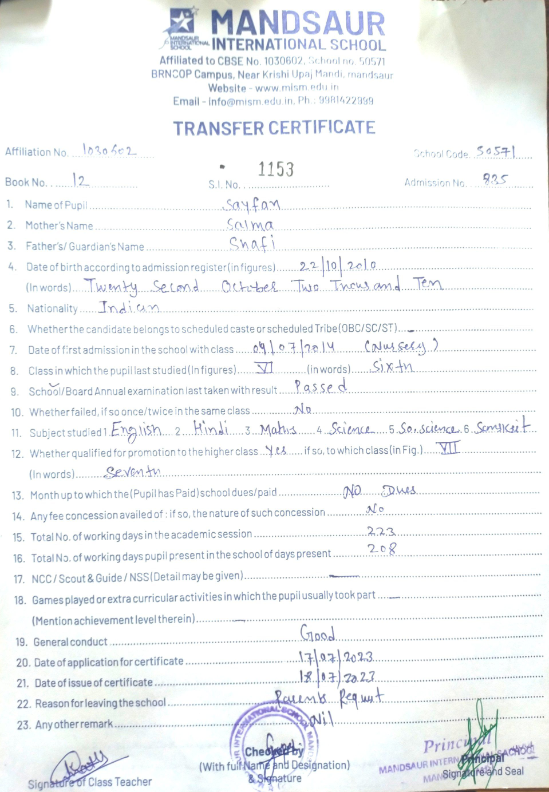 MANDSAUR
INTERNATIONAL SCHOOL
MANDSAUR INTERNATIONAL SCHOOL
Affiliated to CBSE No. 1030602, School no. 50571
BRNCOP Campus, Near Krishi Upaj Mandi, mandsaur
Website - www.mism.edu.in
Email - info@mism.edu.in, Ph.: 9981422999
TRANSFER CERTIFICATE
Affiliation No. 1030602 School Code. 50571
Book No. 12 S.I. No. 1153 Admission No. 835
1. Name of Pupil Sayfan
2. Mother's Name Salma
3. Father's/ Guardian's Name Shafi
4. Date of birth according to admission register (in figures) 22/10/2010
(In words) Twenty Second October Two Thousand Ten
5. Nationality Indian
6. Whether the candidate belongs to scheduled caste or scheduled Tribe (OBC/SC/ST) -
7. Date of first admission in the school with class 09/07/2014 (Nursery)
8. Class in which the pupil last studied (In figures) VI (in words) Sixth
9. School/Board Annual examination last taken with result Passed
10. Whether failed, if so once/twice in the same class No
11. Subject studied 1 English 2. Hindi 3 Maths 4 Science 5 So.science 6 Sanskrit
12. Whether qualified for promotion to the higher class Yes if so, to which class (in Fig.) VII
(In words) Seventh
13. Month up to which the (Pupil has Paid) school dues/paid No Dues
14. Any fee concession availed of : if so, the nature of such concession No
15. Total No. of working days in the academic session 223
16. Total No. of working days pupil present in the school of days present 208
17. NCC / Scout & Guide / NSS (Detail may be given) —
18. Games played or extra curricular activities in which the pupil usually took part —
(Mention achievement level therein) —
19. General conduct Good
20. Date of application for certificate 17/07/2023
21. Date of issue of certificate 18/07/2023
22. Reason for leaving the school Parents Request
23. Any other remark Nil
Signature of Class Teacher
Checked by
(With full Name and Designation)
& Signature
Principal
MANDSAUR INTERNATIONAL SCHOOL
Principal
Signature and Seal